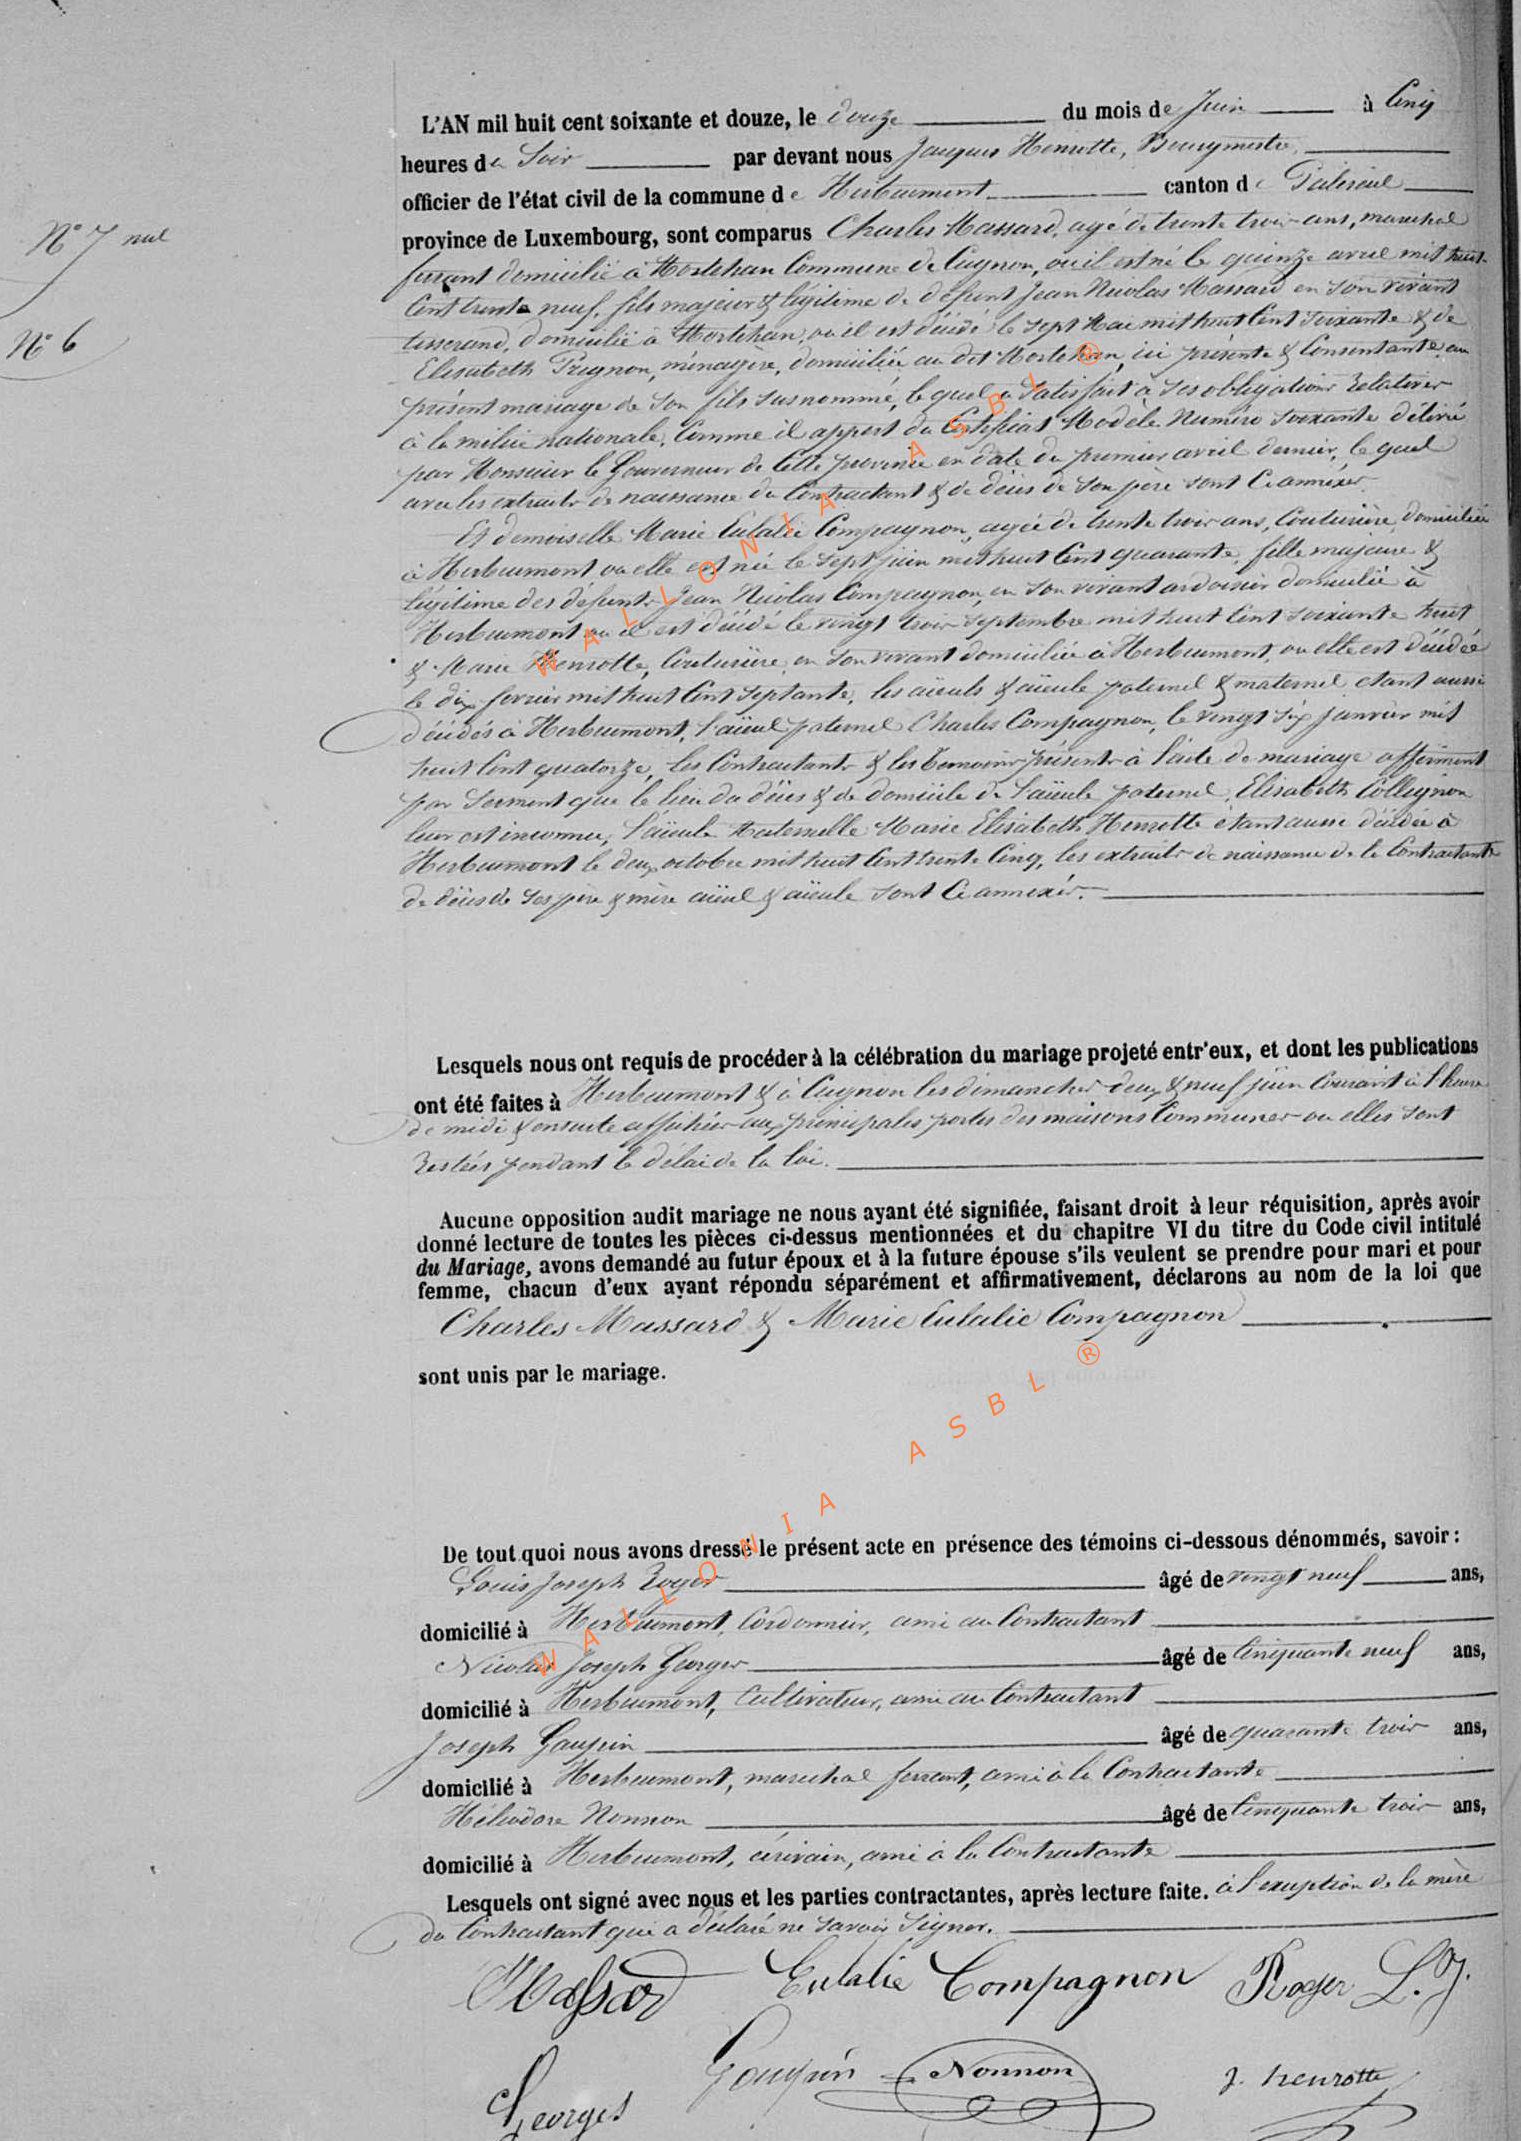 L'AN mil huit cent soixante et douze, le douze du mois de Juin à Cinq
heures du Soir par devant nous Jacques Henrotte, Bourgmestre,
officier de l'état civil de la commune de Herbeumont canton de Paliseul
N° 7 nul
province de Luxembourg, sont comparus Charles Massard, agé de trente trois ans, marechal
ferrant domicilié à Mortehan Commune de Cugnon, où il est né le quinze avril mil huit
Cent trente neuf, fils majeur & légitime de défunt Jean Nicolas Massard en son vivant
N° 6
tisserand, domicilié à Mortehan, où il est décédé le sept Mai mil huit Cent soixante & de
Elisabeth Pregnon, ménagère, domiciliée au dit Mortehan, ici présente & Consentante au
présent mariage de son fils susnommé, le quel a satisfait à ses obligations relatives
à la milice nationale, Comme il appert du Certificat Modèle Numéro soixante délivré
par Monsieur le Gouverneur de Cette province en date du premier avril dernier, le quel
avec les extraits de naissance du Contractant & de décès de son père sont Ci annexés.
Et demoiselle Marie Eulalie Compagnon, agée de trente trois ans, Couturière, domiciliée
à Herbeumont ou elle est née le sept juin mil huit Cent quarante, fille majeure &
légitime des défunts Jean Nicolas Compagnon, en son vivant ardoisier domicilié à
Herbeumont ou il est décédé le vingt trois septembre mil huit Cent soixante huit
& Marie Henrotte, Couturière, en son vivant domiciliée à Herbeumont, ou elle est décédée
le dix fevrier mil huit Cent septante, les aïeuls & aïeule paternel & maternel etant aussi
décédés à Herbeumont, l'aïeul paternel Charles Compagnon, le vingt six janvier mil
huit Cent quatorze, les Contractants & les temoins présents à l'acte de mariage afferment
par serment que le lieu du décès & de domicile de l'aïeule paternel, Elisabeth Collignon
leur est inconnu, l'aïeule Maternelle Marie Elisabeth Henrotte etant aussi décédée à
Herbeumont le deux octobre mil huit Cent trente Cinq, les extraits de naissance de la Contractante
de décès de ses père & mère aïeul & aïeule sont Ci annexés.
Lesquels nous ont requis de procéder à la célébration du mariage projeté entr'eux, et dont les publications
ont été faites à Herbeumont & à Cugnon les dimanches deux & neuf juin Courant à l'heure
de midi & ensuite affichées aux principales portes des maisons Communes ou elles sont
restées pendant le délai de la loi.
Aucune opposition audit mariage ne nous ayant été signifiée, faisant droit à leur réquisition, après avoir
donné lecture de toutes les pièces ci-dessus mentionnées et du chapitre VI du titre du Code civil intitulé
du Mariage, avons demandé au futur époux et à la future épouse s'ils veulent se prendre pour mari et pour
femme, chacun d'eux ayant répondu séparément et affirmativement, déclarons au nom de la loi que
Charles Massard & Marie Eulalie Compagnon
sont unis par le mariage.
De tout quoi nous avons dressé le présent acte en présence des témoins ci-dessous dénommés, savoir :
Louis Joseph Roger âgé de vingt neuf ans,
domicilié à Herbeumont, Cordonnier, ami au Contractant
Nicolas Joseph Georges âgé de Cinquante neuf ans,
domicilié à Herbeumont, Cultivateur, ami au Contractant
Joseph Goupin âgé de quarante trois ans,
domicilié à Herbeumont, marechal ferrant, ami à la Contractante
Héliodore Nonnon âgé de Cinquante trois ans,
domicilié à Herbeumont, écrivain, ami à la Contractante
Lesquels ont signé avec nous et les parties contractantes, après lecture faite. à l'exception de la mère
du Contractant qui a déclaré ne savoir signer.
Massard Eulalie Compagnon Roger L. J.
Georges Goupin Nonnon J. henrotte
WALLONIA ASBL ®
WALLONIA ASBL ®